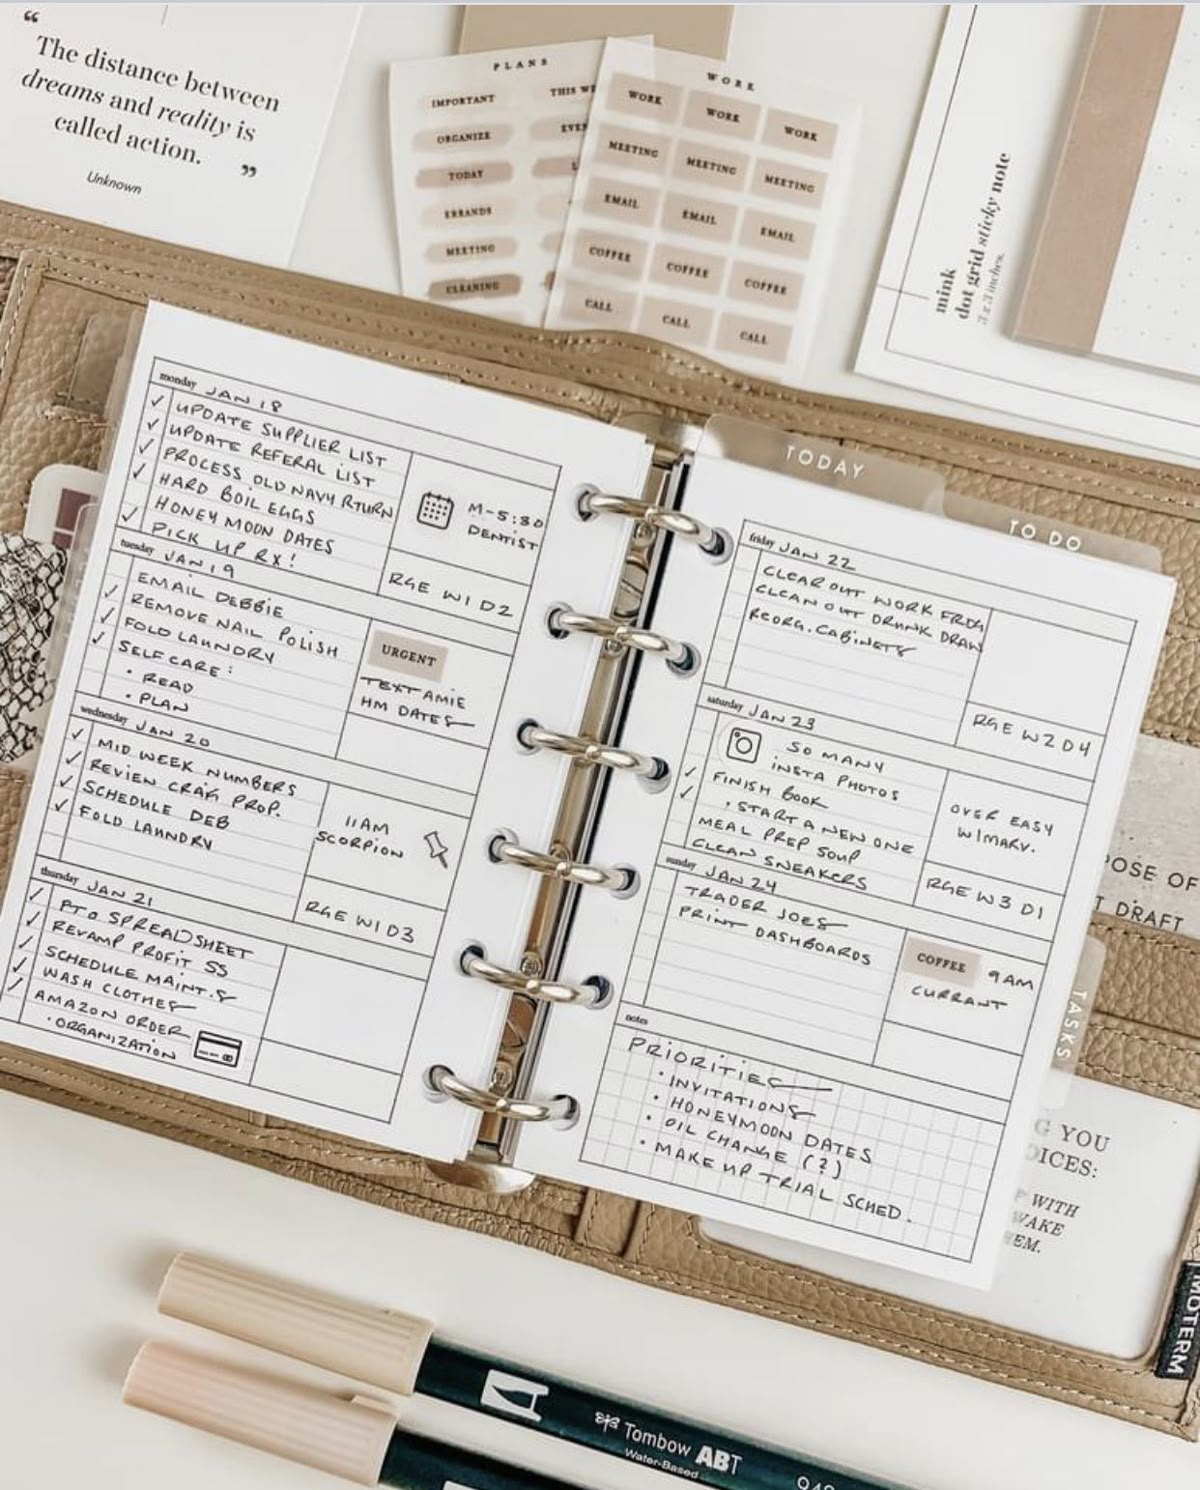 “
The distance between
dreams and reality is
called action.
”
Unknown
PLANS
IMPORTANT
ORGANIZE
TODAY
ERRANDS
MEETING
CLEANING
THIS WE
EVEN
WORK
WORK WORK WORK
MEETING MEETING MEETING
EMAIL EMAIL EMAIL
COFFEE COFFEE COFFEE
CALL CALL CALL
mink
dot grid sticky note
3 x 3 inches.
monday JAN 18
✓ UPDATE SUPPLIER LIST
✓ UPDATE REFERAL LIST
✓ PROCESS OLD NAVY RTURN
✓ HARD BOIL EGGS
HONEYMOON DATES
✓ PICK UP RX!
M-5:30
DENTIST
RGE W1 D2
tuesday JAN 19
EMAIL DEBBIE
✓ REMOVE NAIL POLISH
✓ FOLD LAUNDRY
✓ SELF CARE:
• READ
• PLAN
URGENT
TEXT AMIE
HM DATES
wednesday JAN 20
✓ MID WEEK NUMBERS
✓ REVIEW CRAIG PROP.
✓ SCHEDULE DEB
✓ FOLD LAUNDRY
11AM
SCORPION
RGE W1 D3
thursday JAN 21
✓ PTO SPREADSHEET
✓ REVAMP PROFIT SS
✓ SCHEDULE MAINT.S
✓ WASH CLOTHES
✓ AMAZON ORDER
• ORGANIZATION
TODAY
TO DO
friday JAN 22
CLEAR OUT WORK FRDG
CLEAN OUT DRUNK DRAW
REORG. CABINETS
RGE W2 D4
saturday JAN 23
SO MANY
INSTA PHOTOS
✓ FINISH BOOK
✓ • START A NEW ONE
MEAL PREP SOUP
CLEAN SNEAKERS
OVER EASY
W/MARV.
RGE W3 D1
sunday JAN 24
TRADER JOES
PRINT DASHBOARDS
COFFEE 9AM
CURRANT
notes
PRIORITIES
• INVITATIONS
• HONEYMOON DATES
• OIL CHANGE (?)
• MAKE UP TRIAL SCHED.
TASKS
POSE OF
T DRAFT
G YOU
OICES:
WITH
WAKE
EM.
MOTERM
Tombow ABT
Water-Based